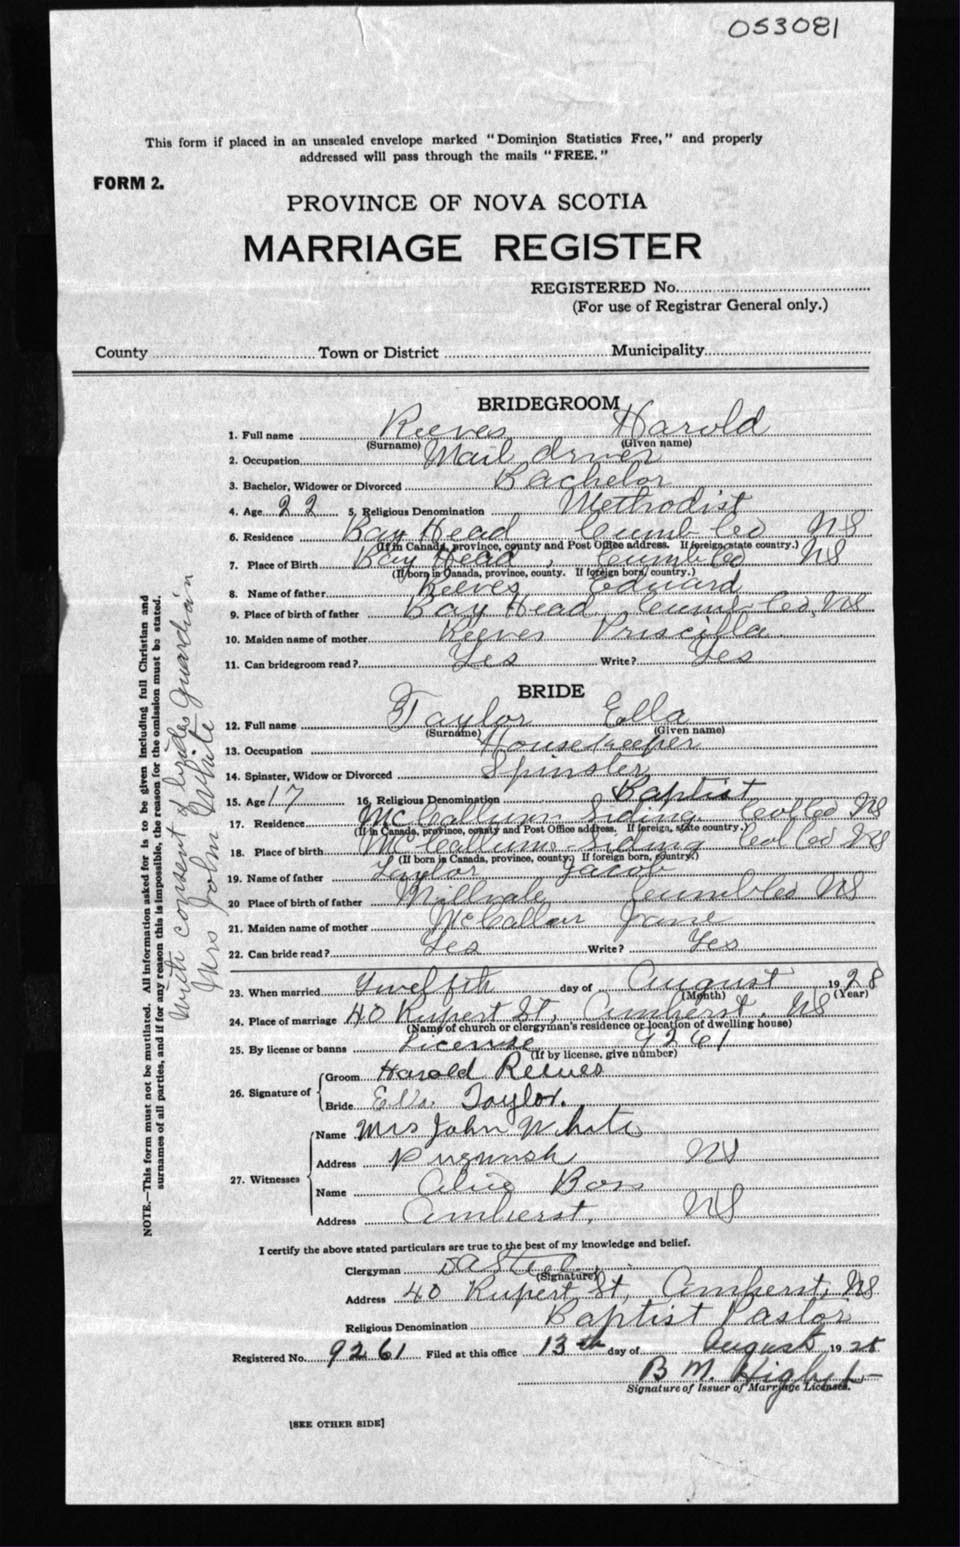 053081
This form if placed in an unsealed envelope marked "Dominion Statistics Free," and properly
addressed will pass through the mails "FREE."
FORM 2.
PROVINCE OF NOVA SCOTIA
MARRIAGE REGISTER
REGISTERED No.
(For use of Registrar General only.)
County Town or District Municipality
BRIDEGROOM
1. Full name Reeves Harold
(Surname) (Given name)
2. Occupation Mail driver
3. Bachelor, Widower or Divorced Bachelor
4. Age 22 5. Religious Denomination Methodist
6. Residence Bay Head Cumb Co NS
(If in Canada, province, county and Post Office address. If foreign, state country.)
7. Place of Birth Bay Head, Cumb Co NS
(If born in Canada, province, county. If foreign born, country.)
8. Name of father Reeves Edward
9. Place of birth of father Bay Head Cumb Co, NS
10. Maiden name of mother Reeves Priscilla
11. Can bridegroom read? Yes Write? Yes
BRIDE
12. Full name Taylor Ella
(Surname) (Given name)
13. Occupation Housekeeper
14. Spinster, Widow or Divorced Spinster
15. Age 17 16. Religious Denomination Baptist
17. Residence McCallum Siding Col Co NS
(If in Canada, province, county and Post Office address. If foreign, state country.)
18. Place of birth McCallums Siding Col Co NS
(If born in Canada, province, county. If foreign born, country.)
19. Name of father Taylor Jacob
20 Place of birth of father Millvale Cumb Co NS
21. Maiden name of mother Jane
22. Can bride read? Yes Write? Yes
23. When married Twelfth day of August 1928
(Month) (Year)
24. Place of marriage 40 Rupert St, Amherst, NS
(Name of church or clergyman's residence or location of dwelling house)
25. By license or banns License 9261
(If by license, give number)
26. Signature of
Groom Harold Reeves
Bride Ella Taylor.
27. Witnesses
Name Mrs John White
Address Pugwash NS
Name Alice
Address Amherst, NS
I certify the above stated particulars are true to the best of my knowledge and belief.
Clergyman
(Signature)
Address 40 Rupert St, Amherst, NS
Religious Denomination Baptist Pastor
Registered No. 9261 Filed at this office 13th day of August 1928
B M.
Signature of Issuer of Marriage Licenses.
[SEE OTHER SIDE]
NOTE.—This form must not be mutilated. All information asked for is to be given including full Christian and
surnames of all parties, and if for any reason this is impossible, the reason for the omission must be stated.
With consent of brides guardian
Mrs John White